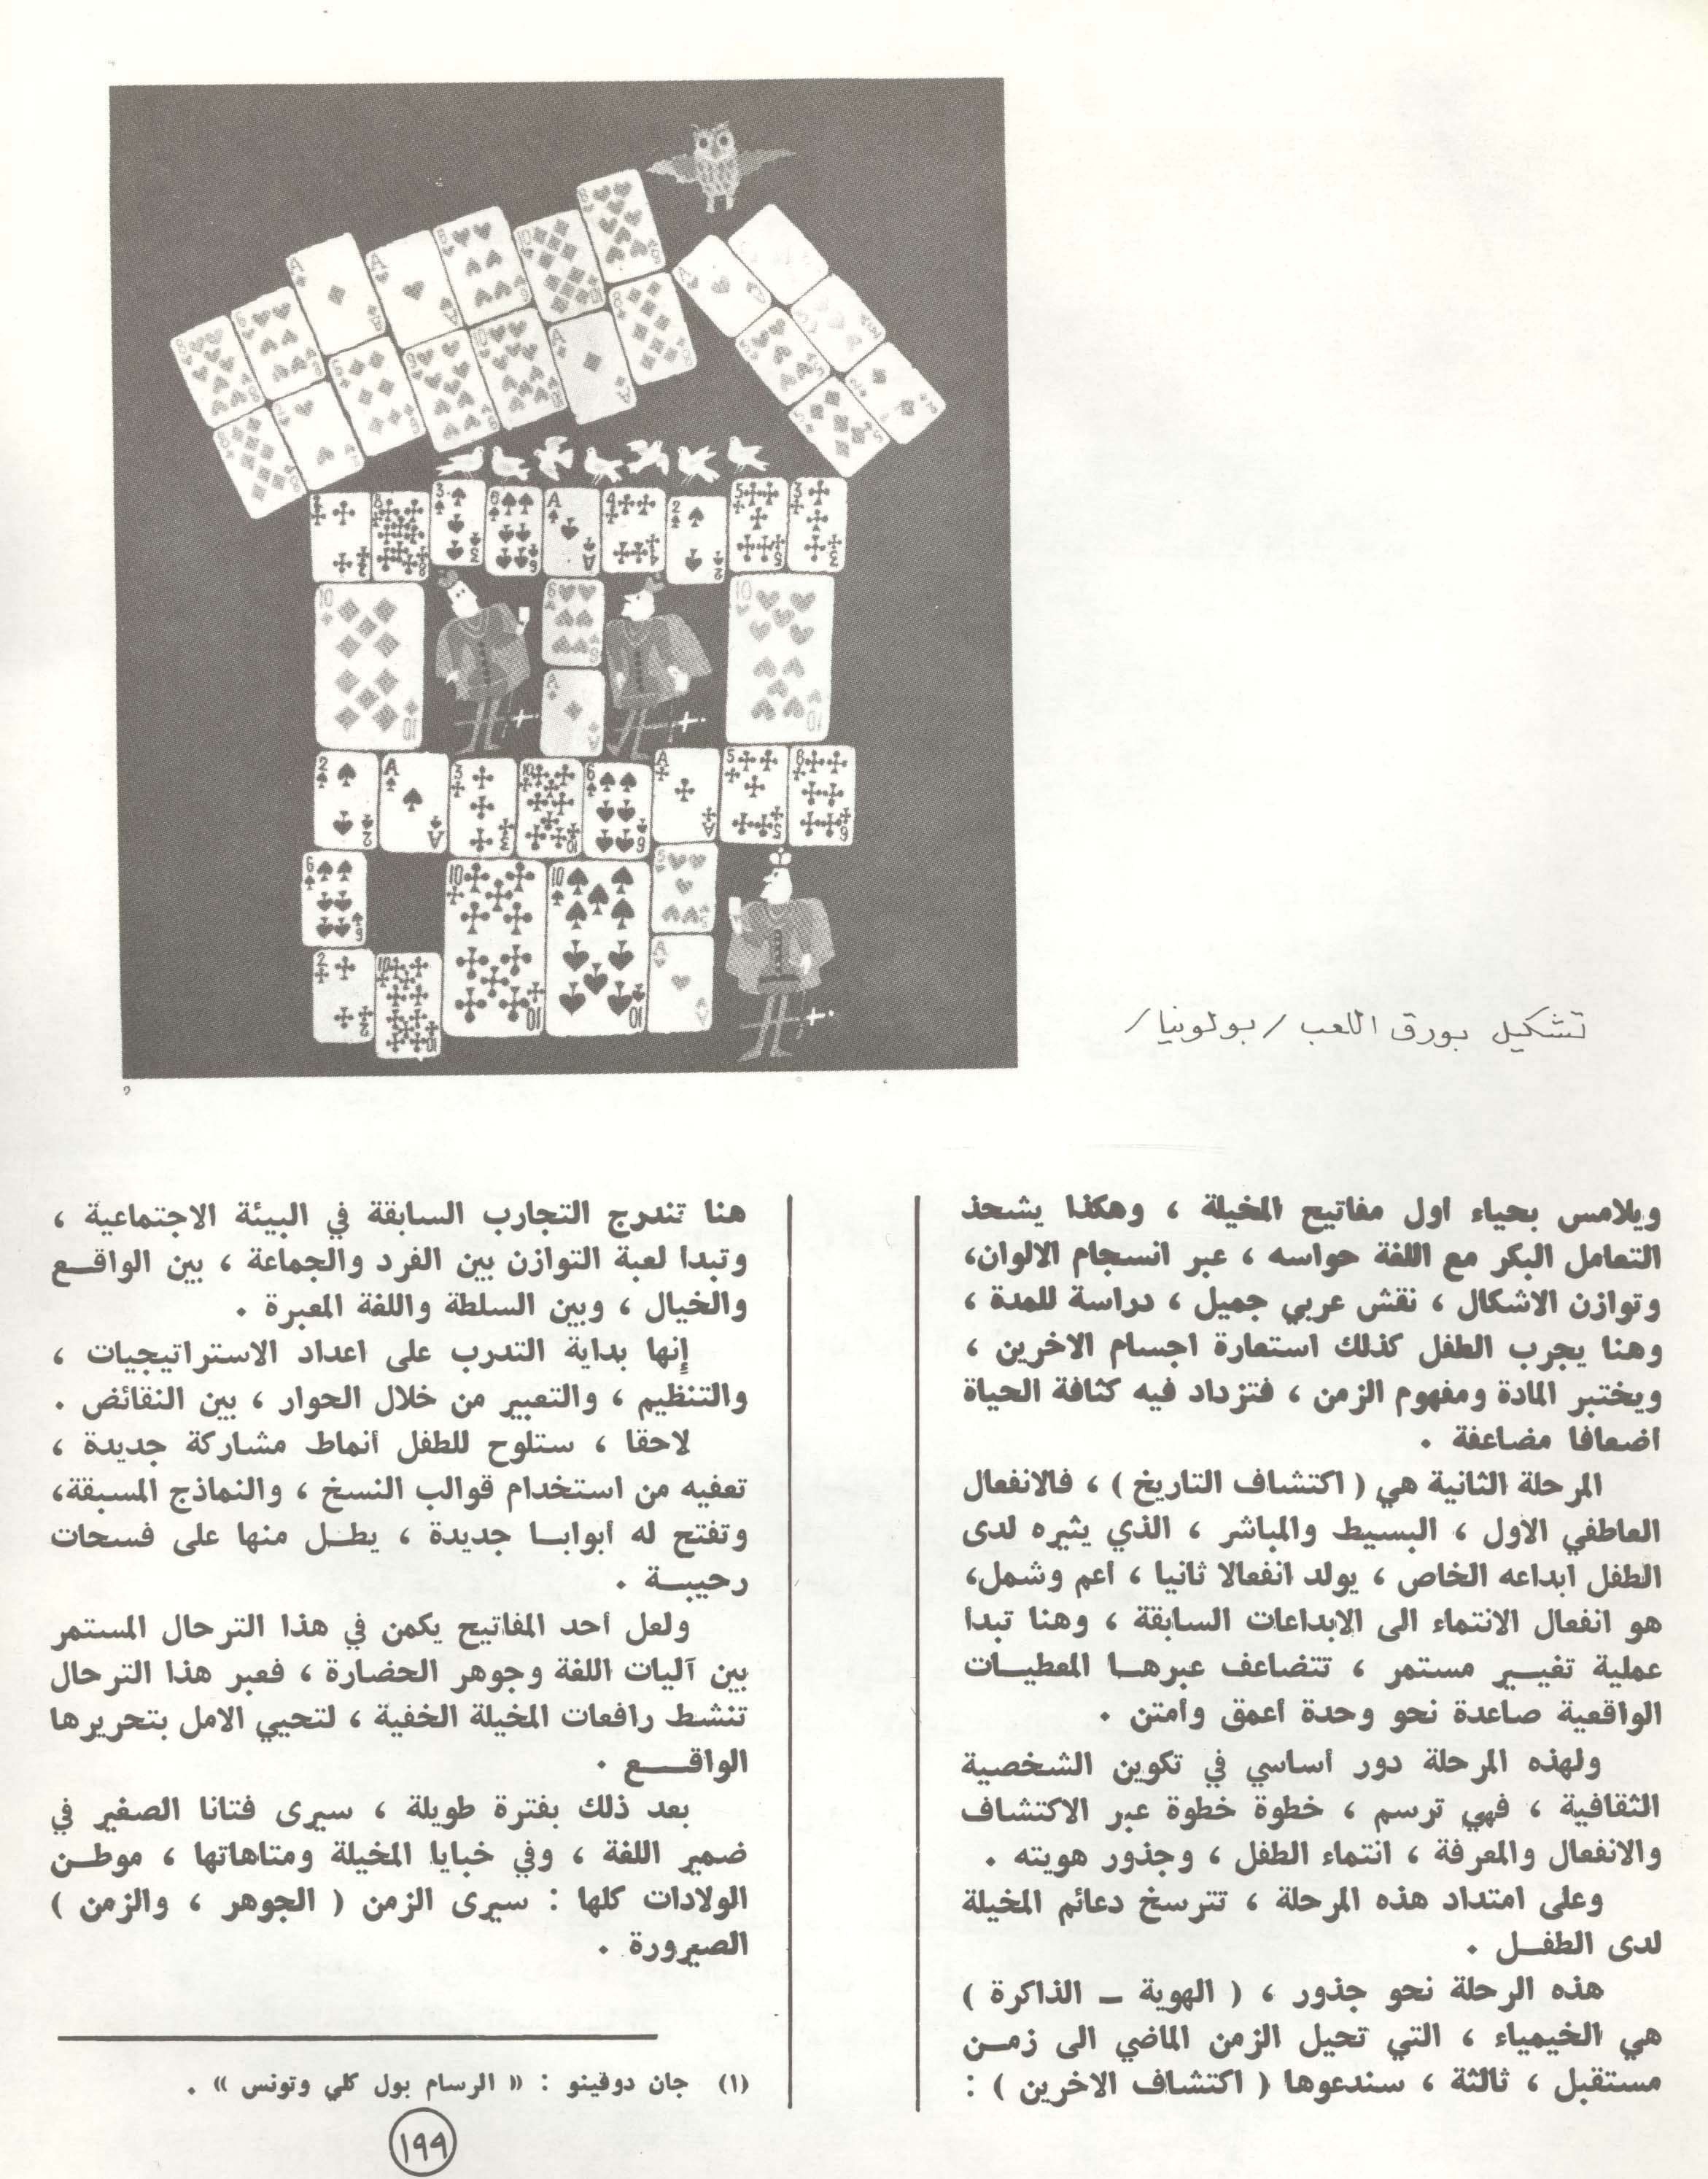 تشكيل بورق اللعب / بولونيا /
ويلامس بحياء اول مفاتيح المخيلة ، وهكذا يشحذ
التعامل البكر مع اللغة حواسه ، عبر انسجام الالوان،
وتوازن الاشكال ، نقش عربي جميل ، دراسة للمدة ،
وهنا يجرب الطفل كذلك استعارة اجسام الاخرين ،
ويختبر المادة ومفهوم الزمن ، فتزداد فيه كثافة الحياة
اضعافا مضاعفة .
المرحلة الثانية هي ( اكتشاف التاريخ ) ، فالانفعال
العاطفي الاول ، البسيط والمباشر ، الذي يثيره لدى
الطفل ابداعه الخاص ، يولد انفعالا ثانيا ، اعم وشمل،
هو انفعال الانتماء الى الابداعات السابقة ، وهنا تبدأ
عملية تغيير مستمر ، تتضاعف عبرها المعطيات
الواقعية صاعدة نحو وحدة اعمق وامتن .
ولهذه المرحلة دور أساسي في تكوين الشخصية
الثقافية ، فهي ترسم ، خطوة خطوة عبر الاكتشاف
والانفعال والمعرفة ، انتماء الطفل ، وجذور هويته .
وعلى امتداد هذه المرحلة ، تترسخ دعائم المخيلة
لدى الطفل .
هذه الرحلة نحو جذور ، ( الهوية ـ الذاكرة )
هي الخيمياء ، التي تحيل الزمن الماضي الى زمن
مستقبل ، ثالثة ، سندعوها ( اكتشاف الاخرين ) :
هنا تندرج التجارب السابقة في البيئة الاجتماعية ،
وتبدا لعبة التوازن بين الفرد والجماعة ، بين الواقع
والخيال ، وبين السلطة واللغة المعبرة .
إنها بداية التدرب على اعداد الاستراتيجيات ،
والتنظيم ، والتعبير من خلال الحوار ، بين النقائض .
لاحقا ، ستلوح للطفل أنماط مشاركة جديدة ،
تعفيه من استخدام قوالب النسخ ، والنماذج المسبقة،
وتفتح له أبوابا جديدة ، يطل منها على فسحات
رحيبة .
ولعل أحد المفاتيح يكمن في هذا الترحال المستمر
بين آليات اللغة وجوهر الحضارة ، فعبر هذا الترحال
تنشط رافعات المخيلة الخفية ، لتحيي الامل بتحريرها
الواقع .
بعد ذلك بفترة طويلة ، سيرى فتانا الصغير في
ضمير اللغة ، وفي خبايا المخيلة ومتاهاتها ، موطن
الولادات كلها : سيرى الزمن ( الجوهر ، والزمن )
الصيرورة .
(١) جان دوفينو : « الرسام بول كلي وتونس » .
١٩٩